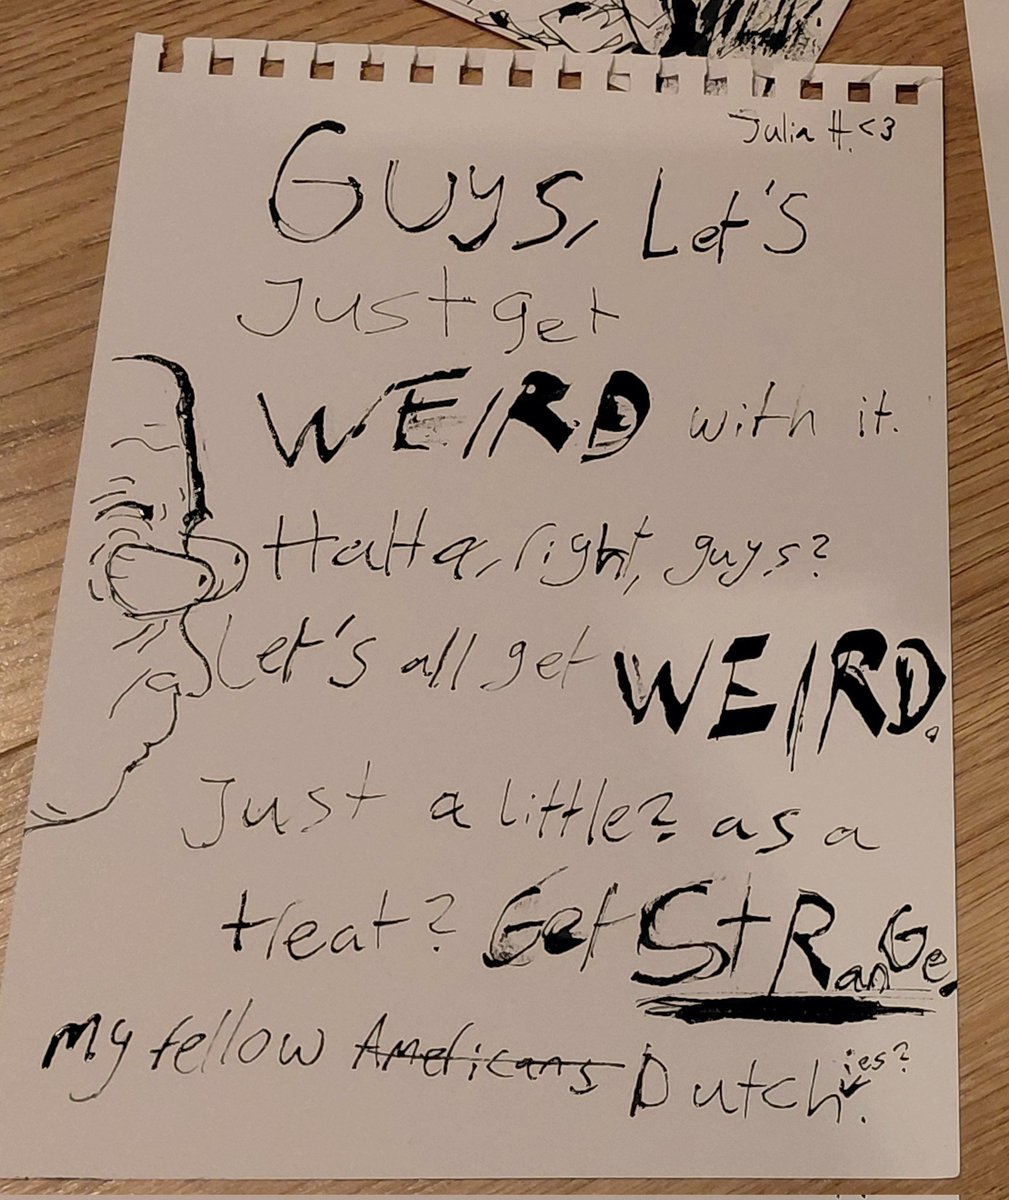 Julia H. <3
Guys, Let's
Just get
WEIRD with it.
Hatta, right, guys?
Let's all get WEIRD.
Just a little? as a
treat? Get StRanGe,
My fellow Americans Dutch ies?.